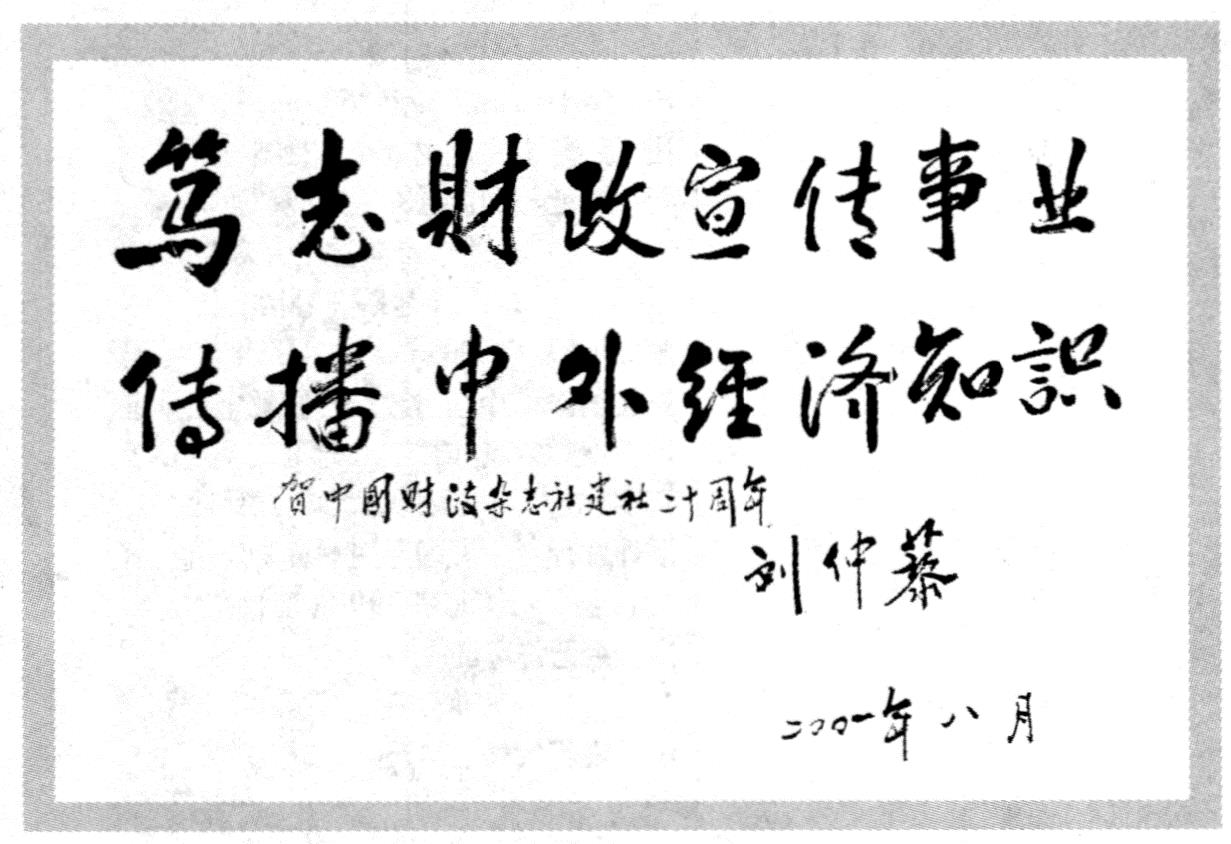 笃志財政宣传事业
传播中外經济知識
贺中國财政杂志社建社二十周年
刘仲藜
二〇〇一年八月